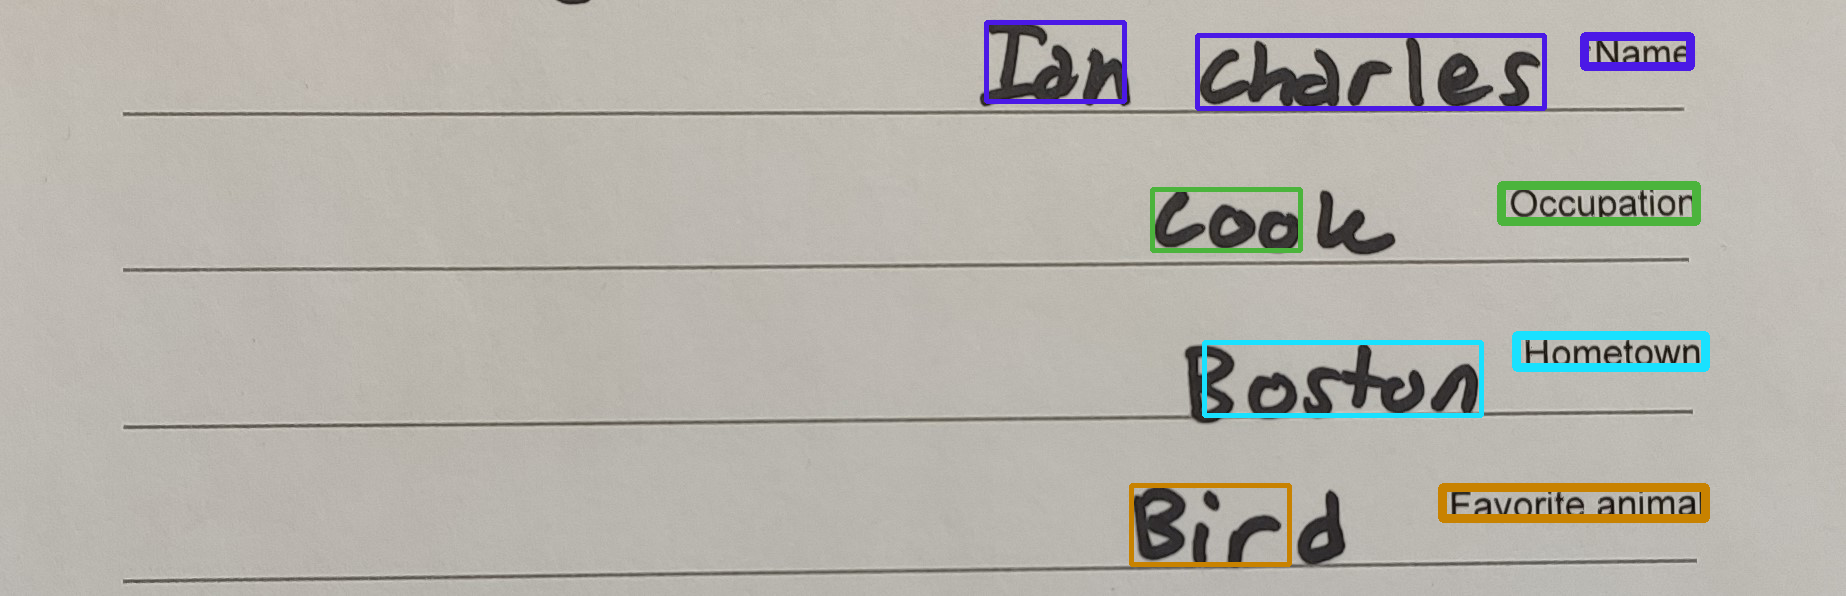 Ian Charles Name
Cook Occupation
Boston Hometown
Bird Favorite animal